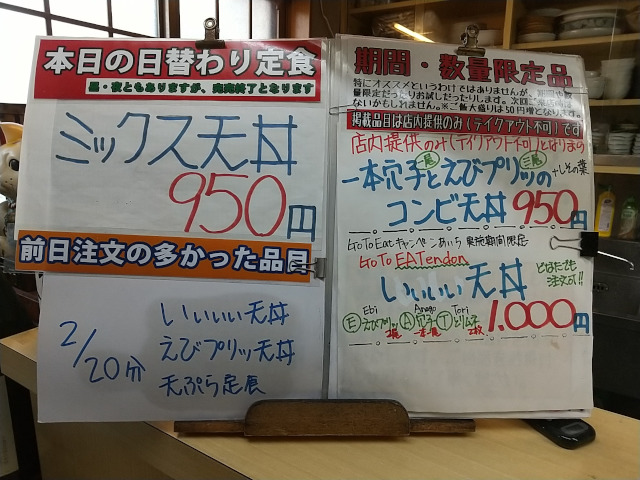 本日の日替わり定食
昼・夜ともありますが、完売終了となります
ミックス天丼
950円
前日注文の多かった品目
2/20分
いいいい天丼
えびプリッ天丼
天ぷら定食
期間・数量限定品
特にオススメというわけではありませんが、期間や数
量限定だったりお試しだったりします。次回ご来店時には
ないかもしれません。※ご飯大盛りは50円増となります。
掲載品目は店内提供のみ(テイクアウト不可)です
店内提供のみ(テイクアウト不可)となります
一本穴子と二尾えびプリッ三尾の+しその葉
コンビ天丼950円
GoToEatキャンペーンあいち 東海期間限定
GoTo EATendon
いいいい天丼
どなたでも
注文可!!
Ebi Anago Tori
Ⓔえびプリッ2尾Ⓐ穴子一本Ⓣとりムネ2枚
1.000円